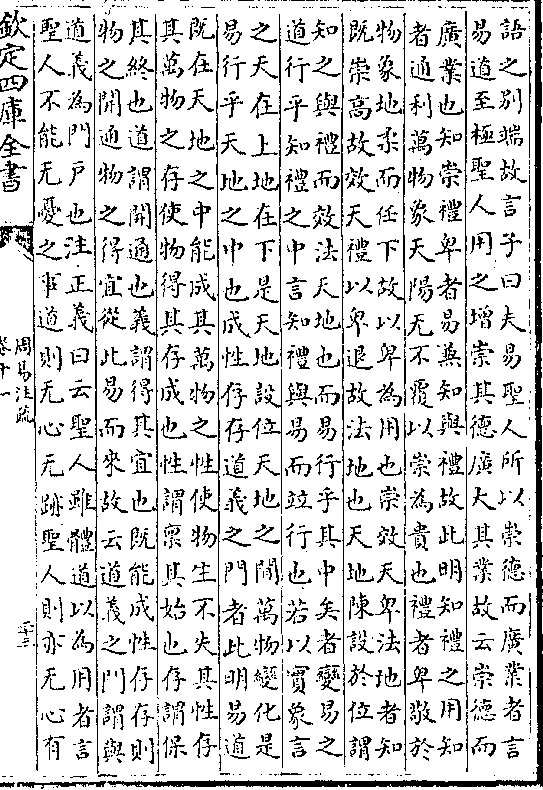 語之别端故言子曰夫易聖人所以崇德而廣業者言
易道至極聖人用之增崇其德廣大其業故云崇德而
廣業也知崇禮卑者易兼知與禮故此明知禮之用知
者通利萬物象天陽无不覆以崇為貴也禮者卑敬於
物象地柔而在下故以卑為用也崇效天卑法地者知
既崇高故效天禮以卑退故法地也天地陳設於位謂
知之與禮而效法天地也而易行乎其中矣者變易之
道行乎知禮之中言知禮與易而竝行也若以實象言
之天在上地在下是天地設位天地之間萬物變化是
易行乎天地之中也成性存存道義之門者此明易道
既在天地之中能成其萬物之性使物生不失其性存
其萬物之存使物得其存成也性謂禀其始也存謂保
其終也道謂開通也義謂得其宜也既能成性存存則
物之開通物之得宜從此易而來故云道義之門謂與
道義為門戶也注正義曰云聖人雖體道以為用者言
聖人不能无憂之事道則无心无跡聖人則亦无心有
欽定四庫全書
周易注疏
卷十一
二十三